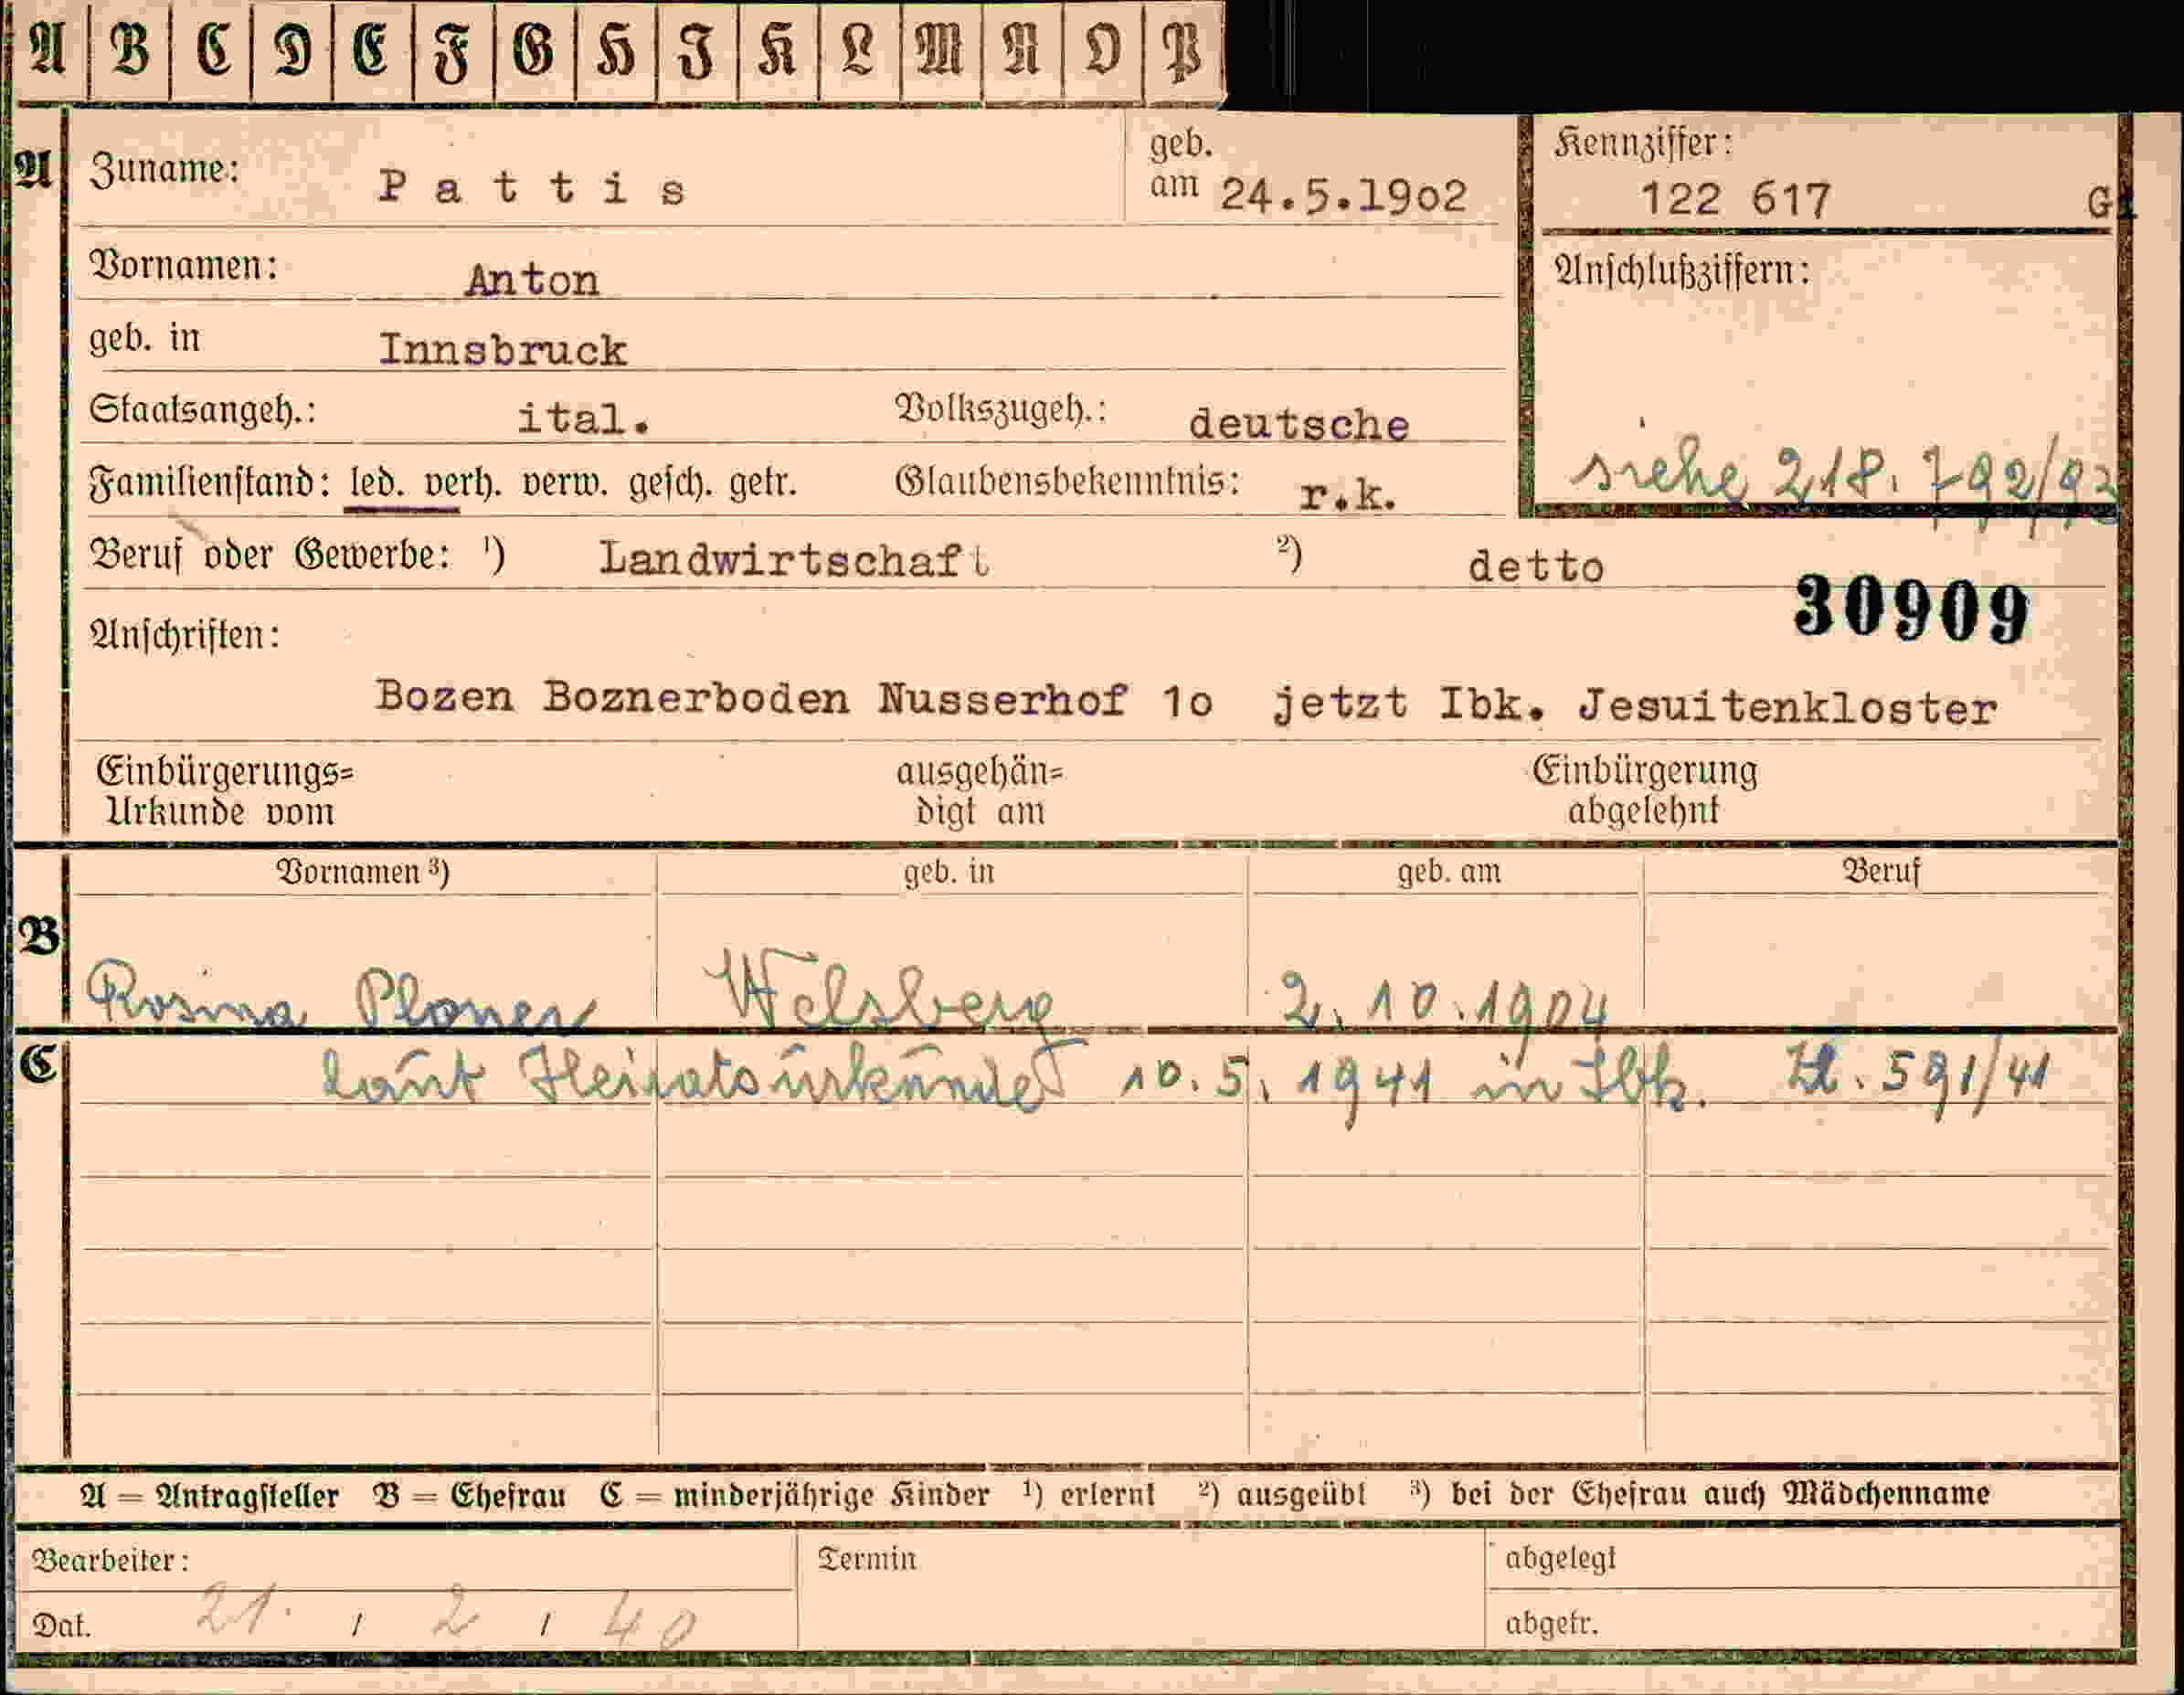 A B C D E F G H I K L M N O P
A Zuname: Pattis geb. am 24.5.19o2 Kennziffer: 122 617 G
Vornamen: Anton Anschlußziffern:
geb. in Innsbruck
Staatsangeh.: ital. Volkszugeh.: deutsche
Familienstand: led. verh. verw. gesch. getr. Glaubensbekenntnis: r.k. siehe 218.792/93
Beruf oder Gewerbe: ¹) Landwirtschaft ²) detto
30909
Anschriften:
Bozen Boznerboden Nusserhof 1o jetzt Ibk. Jesuitenkloster
Einbürgerungs= ausgehän= Einbürgerung
Urkunde vom digt am abgelehnt
Vornamen ³) geb. in geb. am Beruf
B
Rosina Ploner Welsberg 2.10.1904
C laut Heiratsurkunde 10.5.1941 in Ibk. Zl. 591/41
A = Antragsteller B = Ehefrau C = minderjährige Kinder ¹) erlernt ²) ausgeübt ³) bei der Ehefrau auch Mädchenname
Bearbeiter: Termin abgelegt
Dat. 21. / 2 / 40 abgetr.